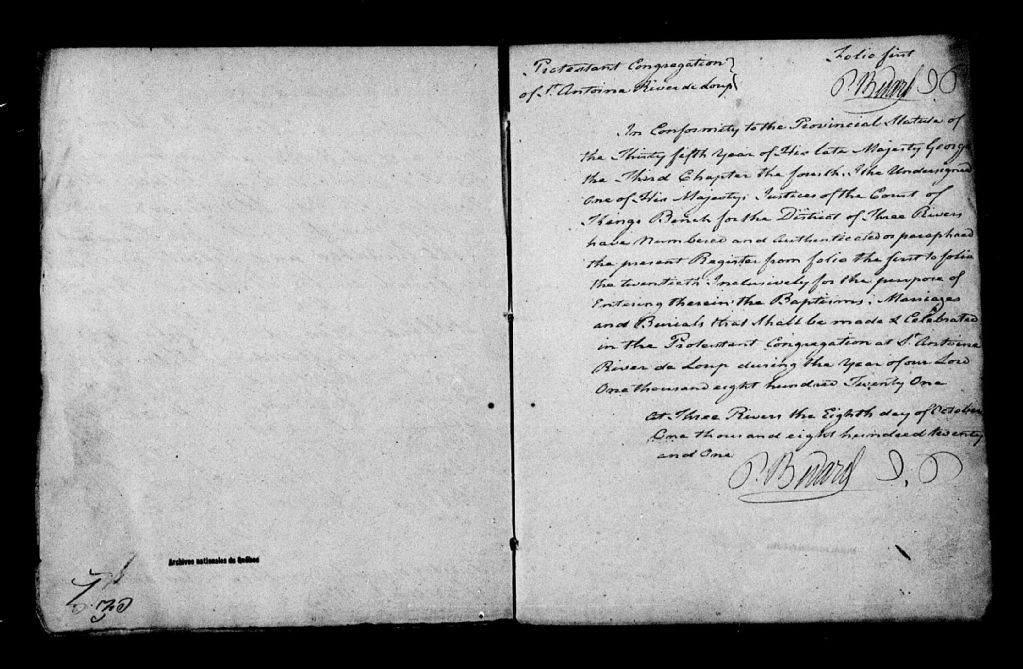 Archives nationales du Québec
Protestant Congregation
of St. Antoine River de Loup
Folio first
P. Bedard J P
In Conformity to the Provincial Statute of
the Thirty fifth Year of His late Majesty George
the Third Chapter the fourth. The Undersigned
One of His Majestys Justices of the Court of
Kings Bench for the District of Three Rivers
have Numbered and Authenticated or paraphed
the present Register from folio the first to folio
the twentieth Inclusively for the purpose of
Entering therein the Baptisms, Marriages
and Burials that shall be made & Celebrated
in the Protestant Congregation at St. Antoine
River de Loup during the Year of our Lord
One thousand eight hundred Twenty One
At Three Rivers the Eighth day of October
One thousand eight hundred twenty
and One
P. Bedard J. P